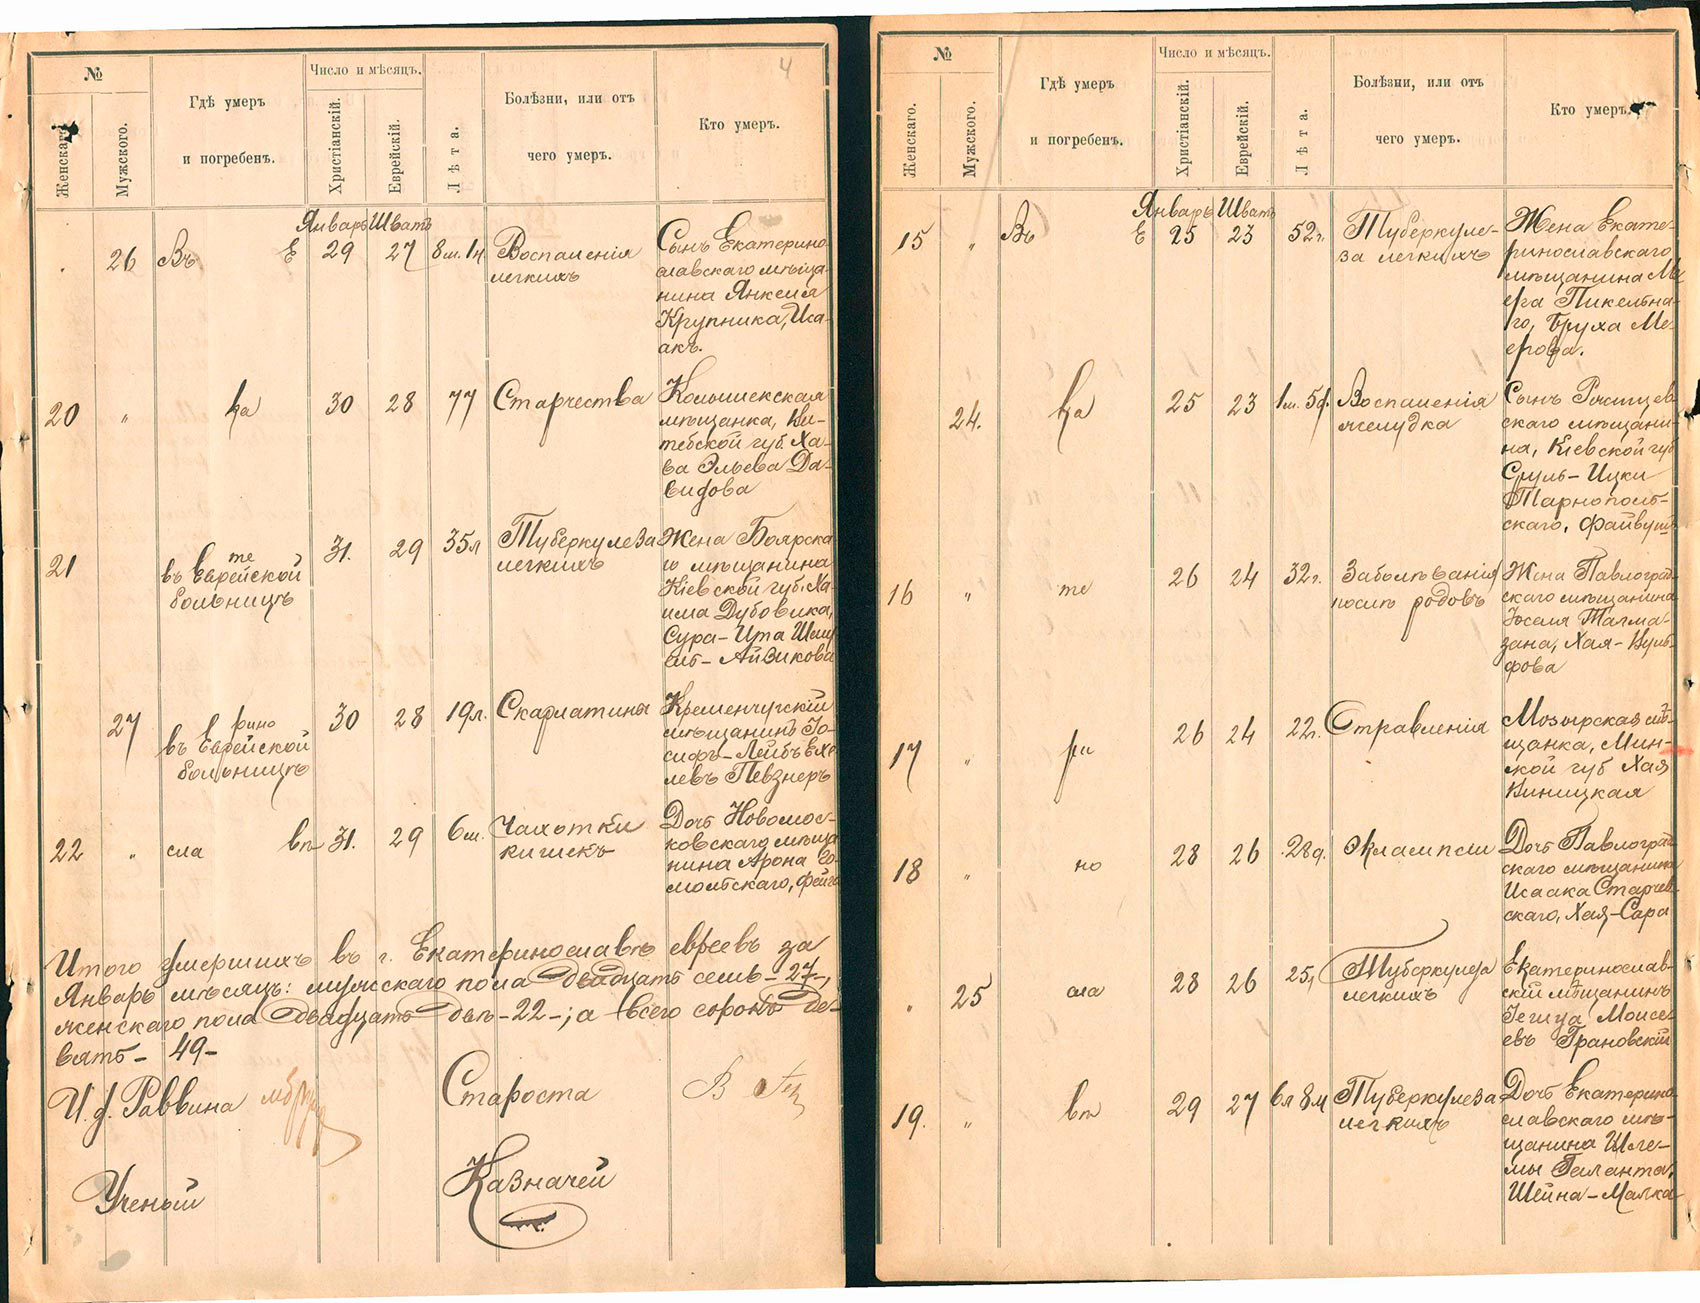 №
Женскаго.
Мужского.
Гдѣ умеръ
и погребенъ.
Число и мѣсяцъ.
Христіанскій.
Еврейскій.
Лѣта.
Болѣзни, или отъ
чего умеръ.
Кто умеръ.
4
Январь Шватъ
26 Въ Е 29 27 8 м. 1 н Воспаленія
легкихъ
Сынъ Екатерино-
славскаго мѣща-
нина Янкеля
Крупника, Иса-
акъ.
20 " ка 30 28 77 Старчества
Колышекская
мѣщанка, Ви-
тебской губ. Ха-
ва Эльева Да-
видова
21 те 31. 29 35 л Туберкулеза
въ Еврейской
больницѣ
легкихъ
Жена Боярска-
го мѣщанина
Кіевской губ. Ха-
има Дубовика,
Сура-Ита Шму-
иль-Айзикова
27 рино 30 28 19 л. Скарлатина
въ Еврейской
больницѣ
Кременчугскій
мѣщанинъ Іо-
сифъ-Лейбъ
левъ Певзнеръ
22 " сла вѣ 31. 29 6 м. Чахотки
кишекъ
Дочь Новомос-
ковскаго мѣща-
нина Арона Го-
мольскаго, Фейга
Итого умершихъ въ г. Екатеринославѣ евреевъ за
Январь мѣсяцъ: мужскаго пола двадцать семь -27-,
женскаго пола двадцать двѣ -22-; а всего сорокъ де-
вять - 49-
И. д. Раввина
Староста
Ученый
Казначей
№
Женскаго.
Мужского.
Гдѣ умеръ
и погребенъ.
Число и мѣсяцъ.
Христіанскій.
Еврейскій.
Лѣта.
Болѣзни, или отъ
чего умеръ.
Кто умеръ.
Январь Шватъ
15 " Въ Е 25 23 52 г. Туберкуле-
за легкихъ
Жена Екате-
ринославскаго
мѣщанина Ме-
ера Пикельна-
го, Бруха Ме-
ерова.
24. ка 25 23 1 м. 5 д. Воспаленія
желудка
Сынъ Ржищев-
скаго мѣщани-
на, Кіевской губ
Сруль-Ицки
Тарнополь-
скаго, Файвушъ
16 " те 26 24 32 г. Заболѣванія
послѣ родовъ
Жена Павлоград-
скаго мѣщанина
Іоселя Талма-
зана, Хая-Вуль-
фова
17 " ри 26 24 22 г. Отравленія
Мозырская мѣ-
щанка, Мин-
кой губ Хая
Виницкая
18 " но 28 26 28 д. Эклампсіи
Дочь Павлоград-
скаго мѣщанина
Исаака Старчев-
скаго, Хая-Сара
" 25 сла 28 26 25 Туберкулеза
легкихъ
Екатеринослав-
скій мѣщанинъ
Гешуа Моисе-
евъ Грановскій
19. " вѣ 29 27 6 л 8 м Туберкулеза
легкихъ
Дочь Екатерино-
славскаго мѣ-
щанина Шле-
мы Галанта,
Шейна-Малка